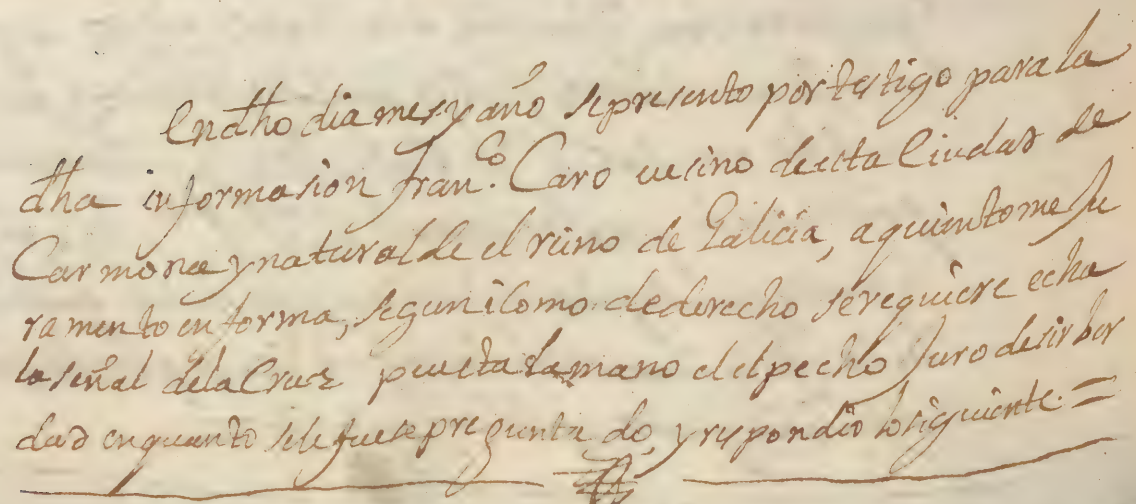 En dho dia mes y año se presento por testigo para la
dha informasion fran.co Caro vesino de esta Ciudad de
Carmona y natural de el reino de Galicia, a quien tome Ju
ramento en forma, segun i Como de derecho se requiere echa
la señal de la Cruz puesta la mano el pecho Juro desir ber
dad en quanto se le fuese preguntado, y respondio lo siguiente. =